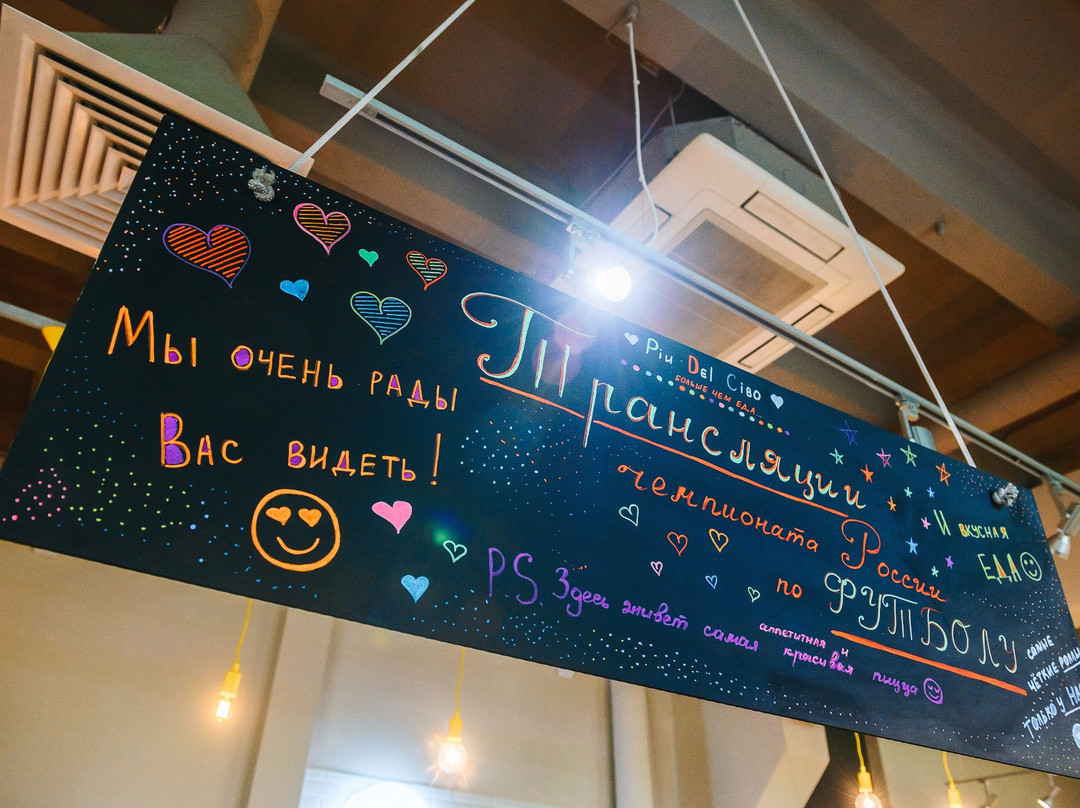 Мы очень рады
Вас видеть!
Piu Del Cibo
больше чем еда...
Трансляции
чемпионата России
по ФУТБОЛУ
И вкусная
ЕДА
P.S. Здесь живёт самая аппетитная и красивая пицца
самые
чёткие
только у